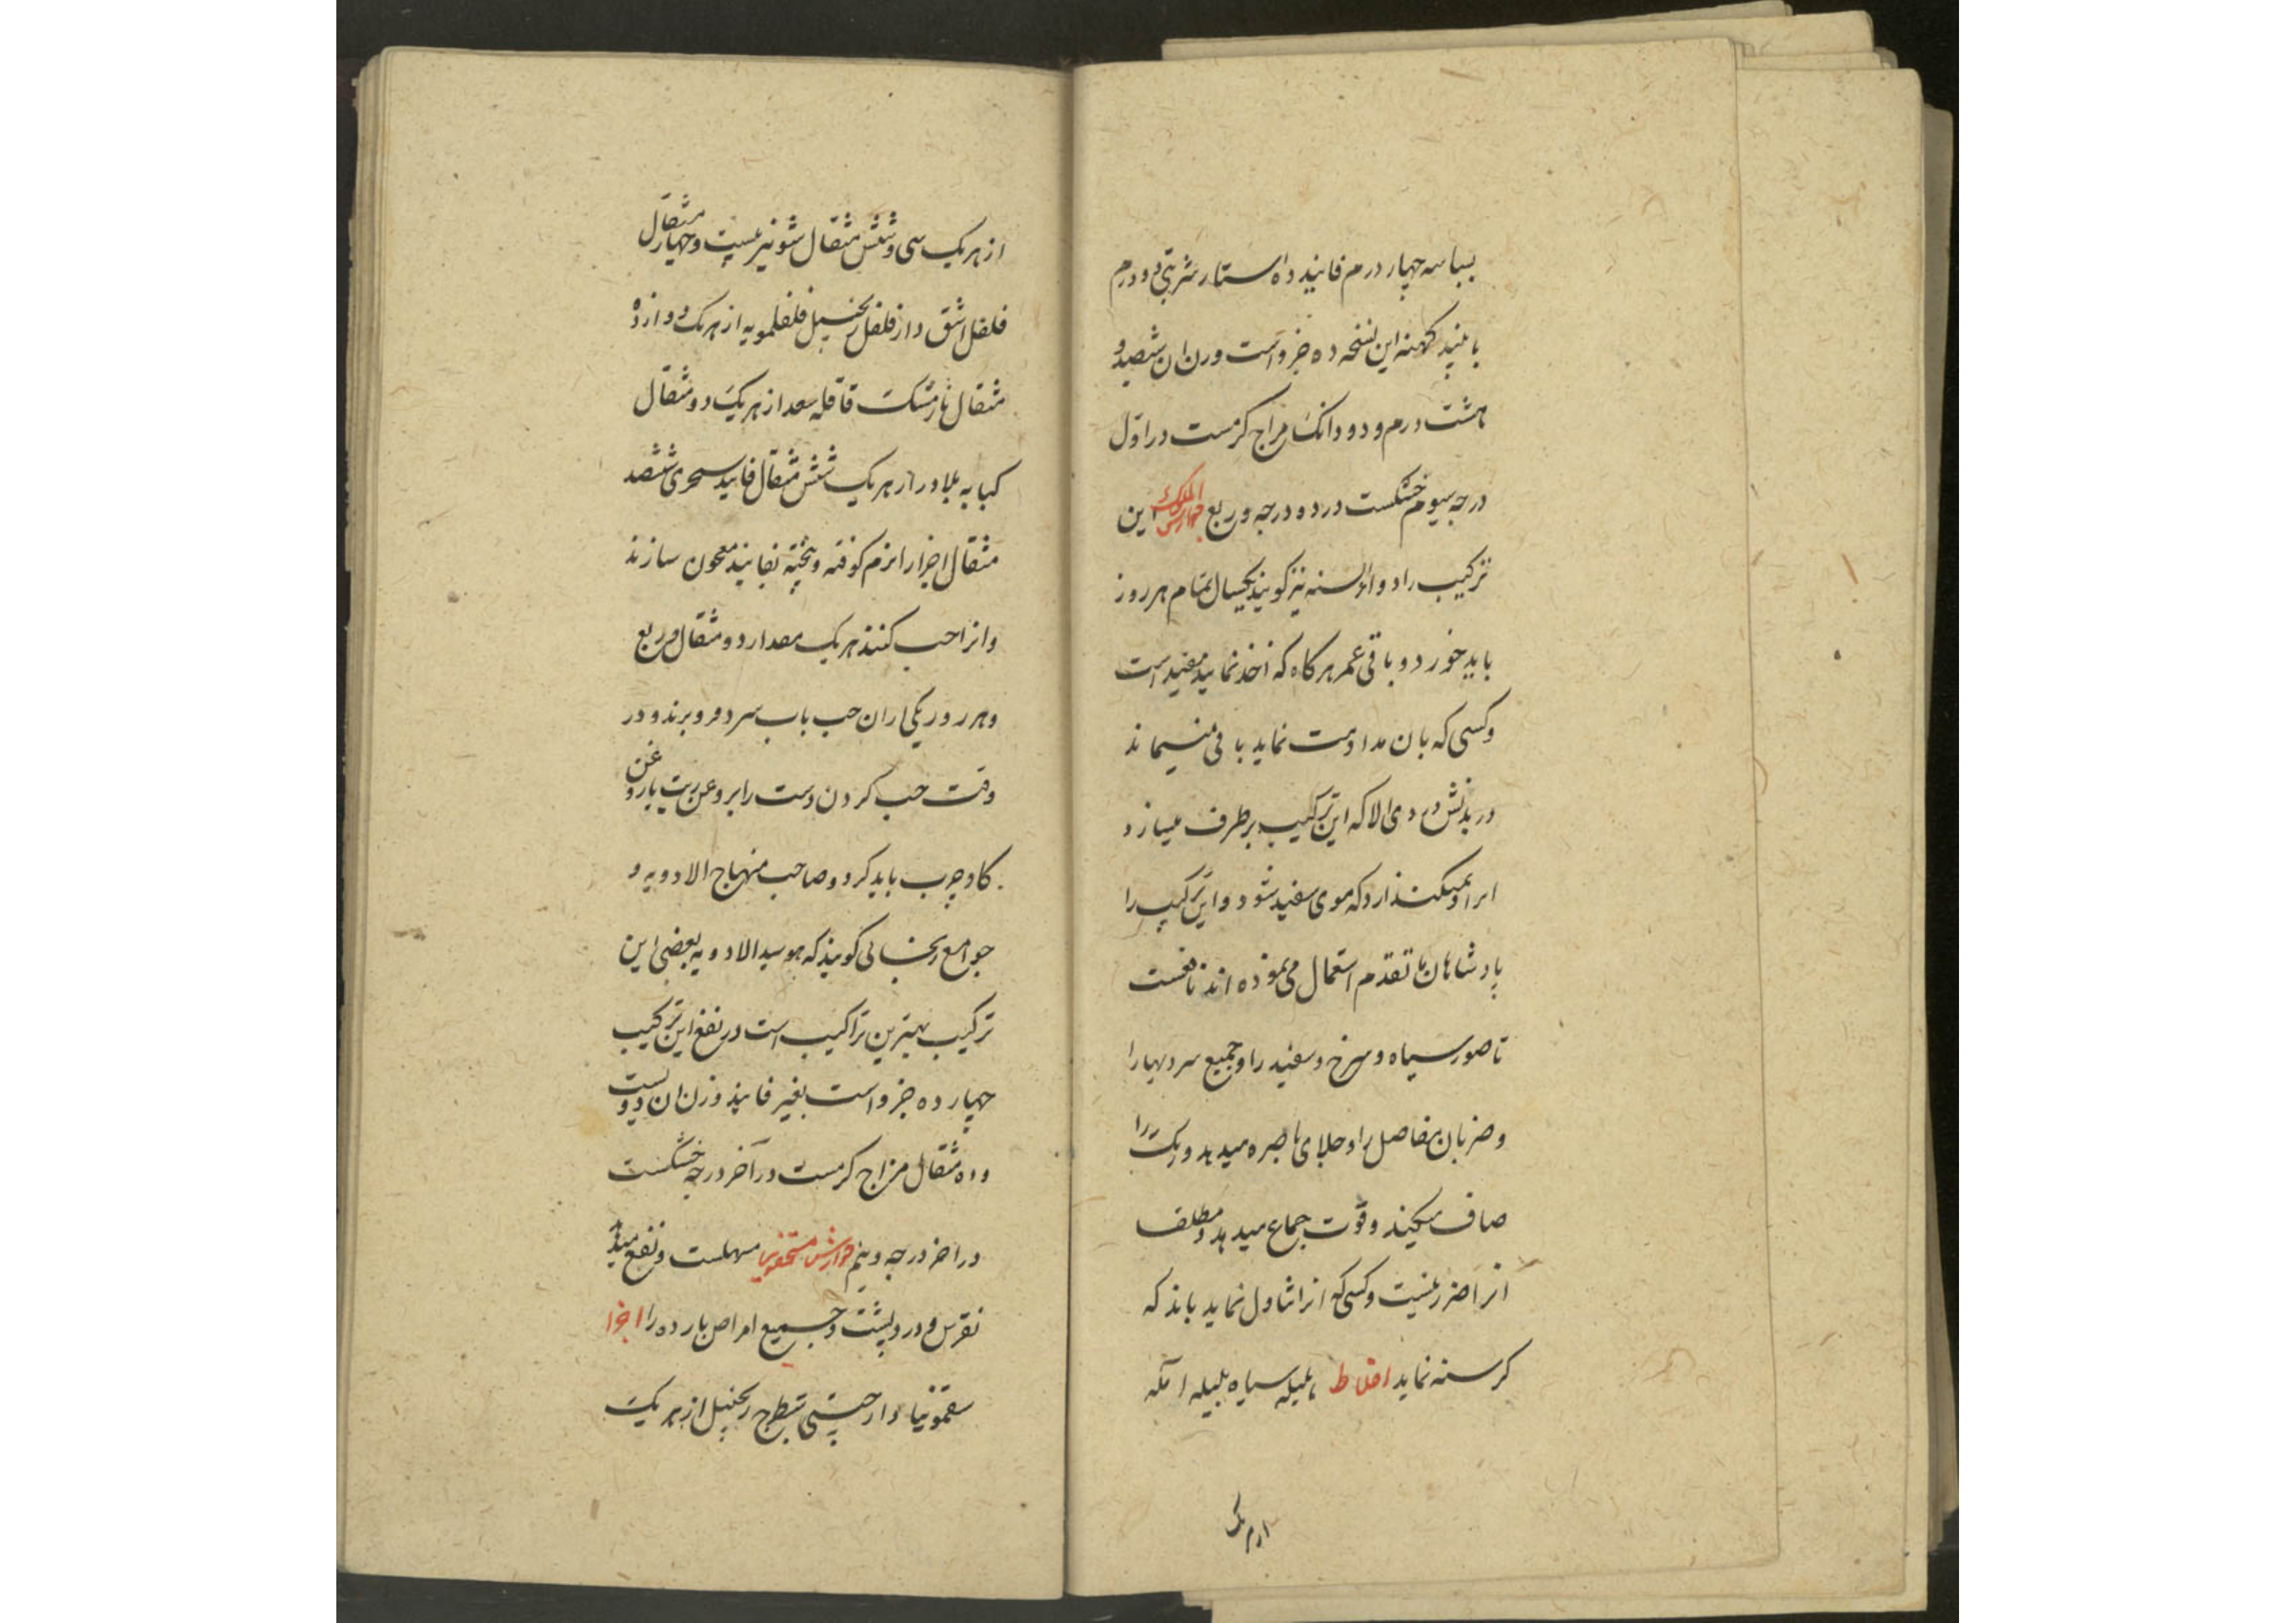 بسباسه چهار درم فانیذ ده استار شربتی دو درم
باینذ کهنه این نسخه ده جزو است وزن ان ششصد و
هشت درم و دو دانک مزاج کرمست در اول
درجه سیوم خشکست در دو درجه و ربع جوارش الملوک این
ترکیب را دواء السنه نیز کویند یکسال تمام هر روز
باید خورد و باقی عمر هرکاه که اخذ نماید مفید است
و کسی که بان مداومت نماید باقی نمیماند
در بدنش دردی الا که این ترکیب برطرف میسازد
نمیکذارد که موی سفید شود و این ترکیب را
پادشاهان ما تقدم استعمال می نموده اند نافعست
ناصور سیاه و سرخ و سفید را و جمیع سردیها را
و ضربان مفاصل را و جلای باصره میدهد و رنک را
صاف میکند و قوت جماع میدهد و مطلقا
انرا ضرر نیست و کسی که انرا تناول نماید باید که
کرسنه نماید اخلاط هلیله سیاه بلیله امله
از هر یک
از هر یک سی و شش مثقال شونیز بیست و چهار مثقال
فلفل اشق دارفلفل زنجبیل فلفلمویه از هر یک دوازده
مثقال نارمشک قاقله سعد از هر یک دو مثقال
کبابه بلادر از هر یک شش مثقال فانید سجزی ششصد
مثقال اجزا را نرم کوفته و بیخته بفانیذ معجون سازند
و انرا حب کنند هر یک مقدار دو مثقال و ربع
و هر روز یکی از ان حب باب سرد فرو برند و در
وقت حب کردن دست را بروغن زیت یا روغن
کاو چرب باید کرد و صاحب منهاج الادویه و
جوامع کویند که هو سید الادویه بعضی این
ترکیب بهترین تراکیب است در نفع این ترکیب
چهارده جزو است بغیر فانیذ وزن ان دویست
و ده مثقال مزاج کرمست در آخر درجه خشکست
در اخر درجه دویم جوارش مسهلست و نفع میدهد
نقرس و درد پشت و جمیع امراض بارده را اجزا
سقمونیا دارچینی شیطرج زنجبیل از هر یک